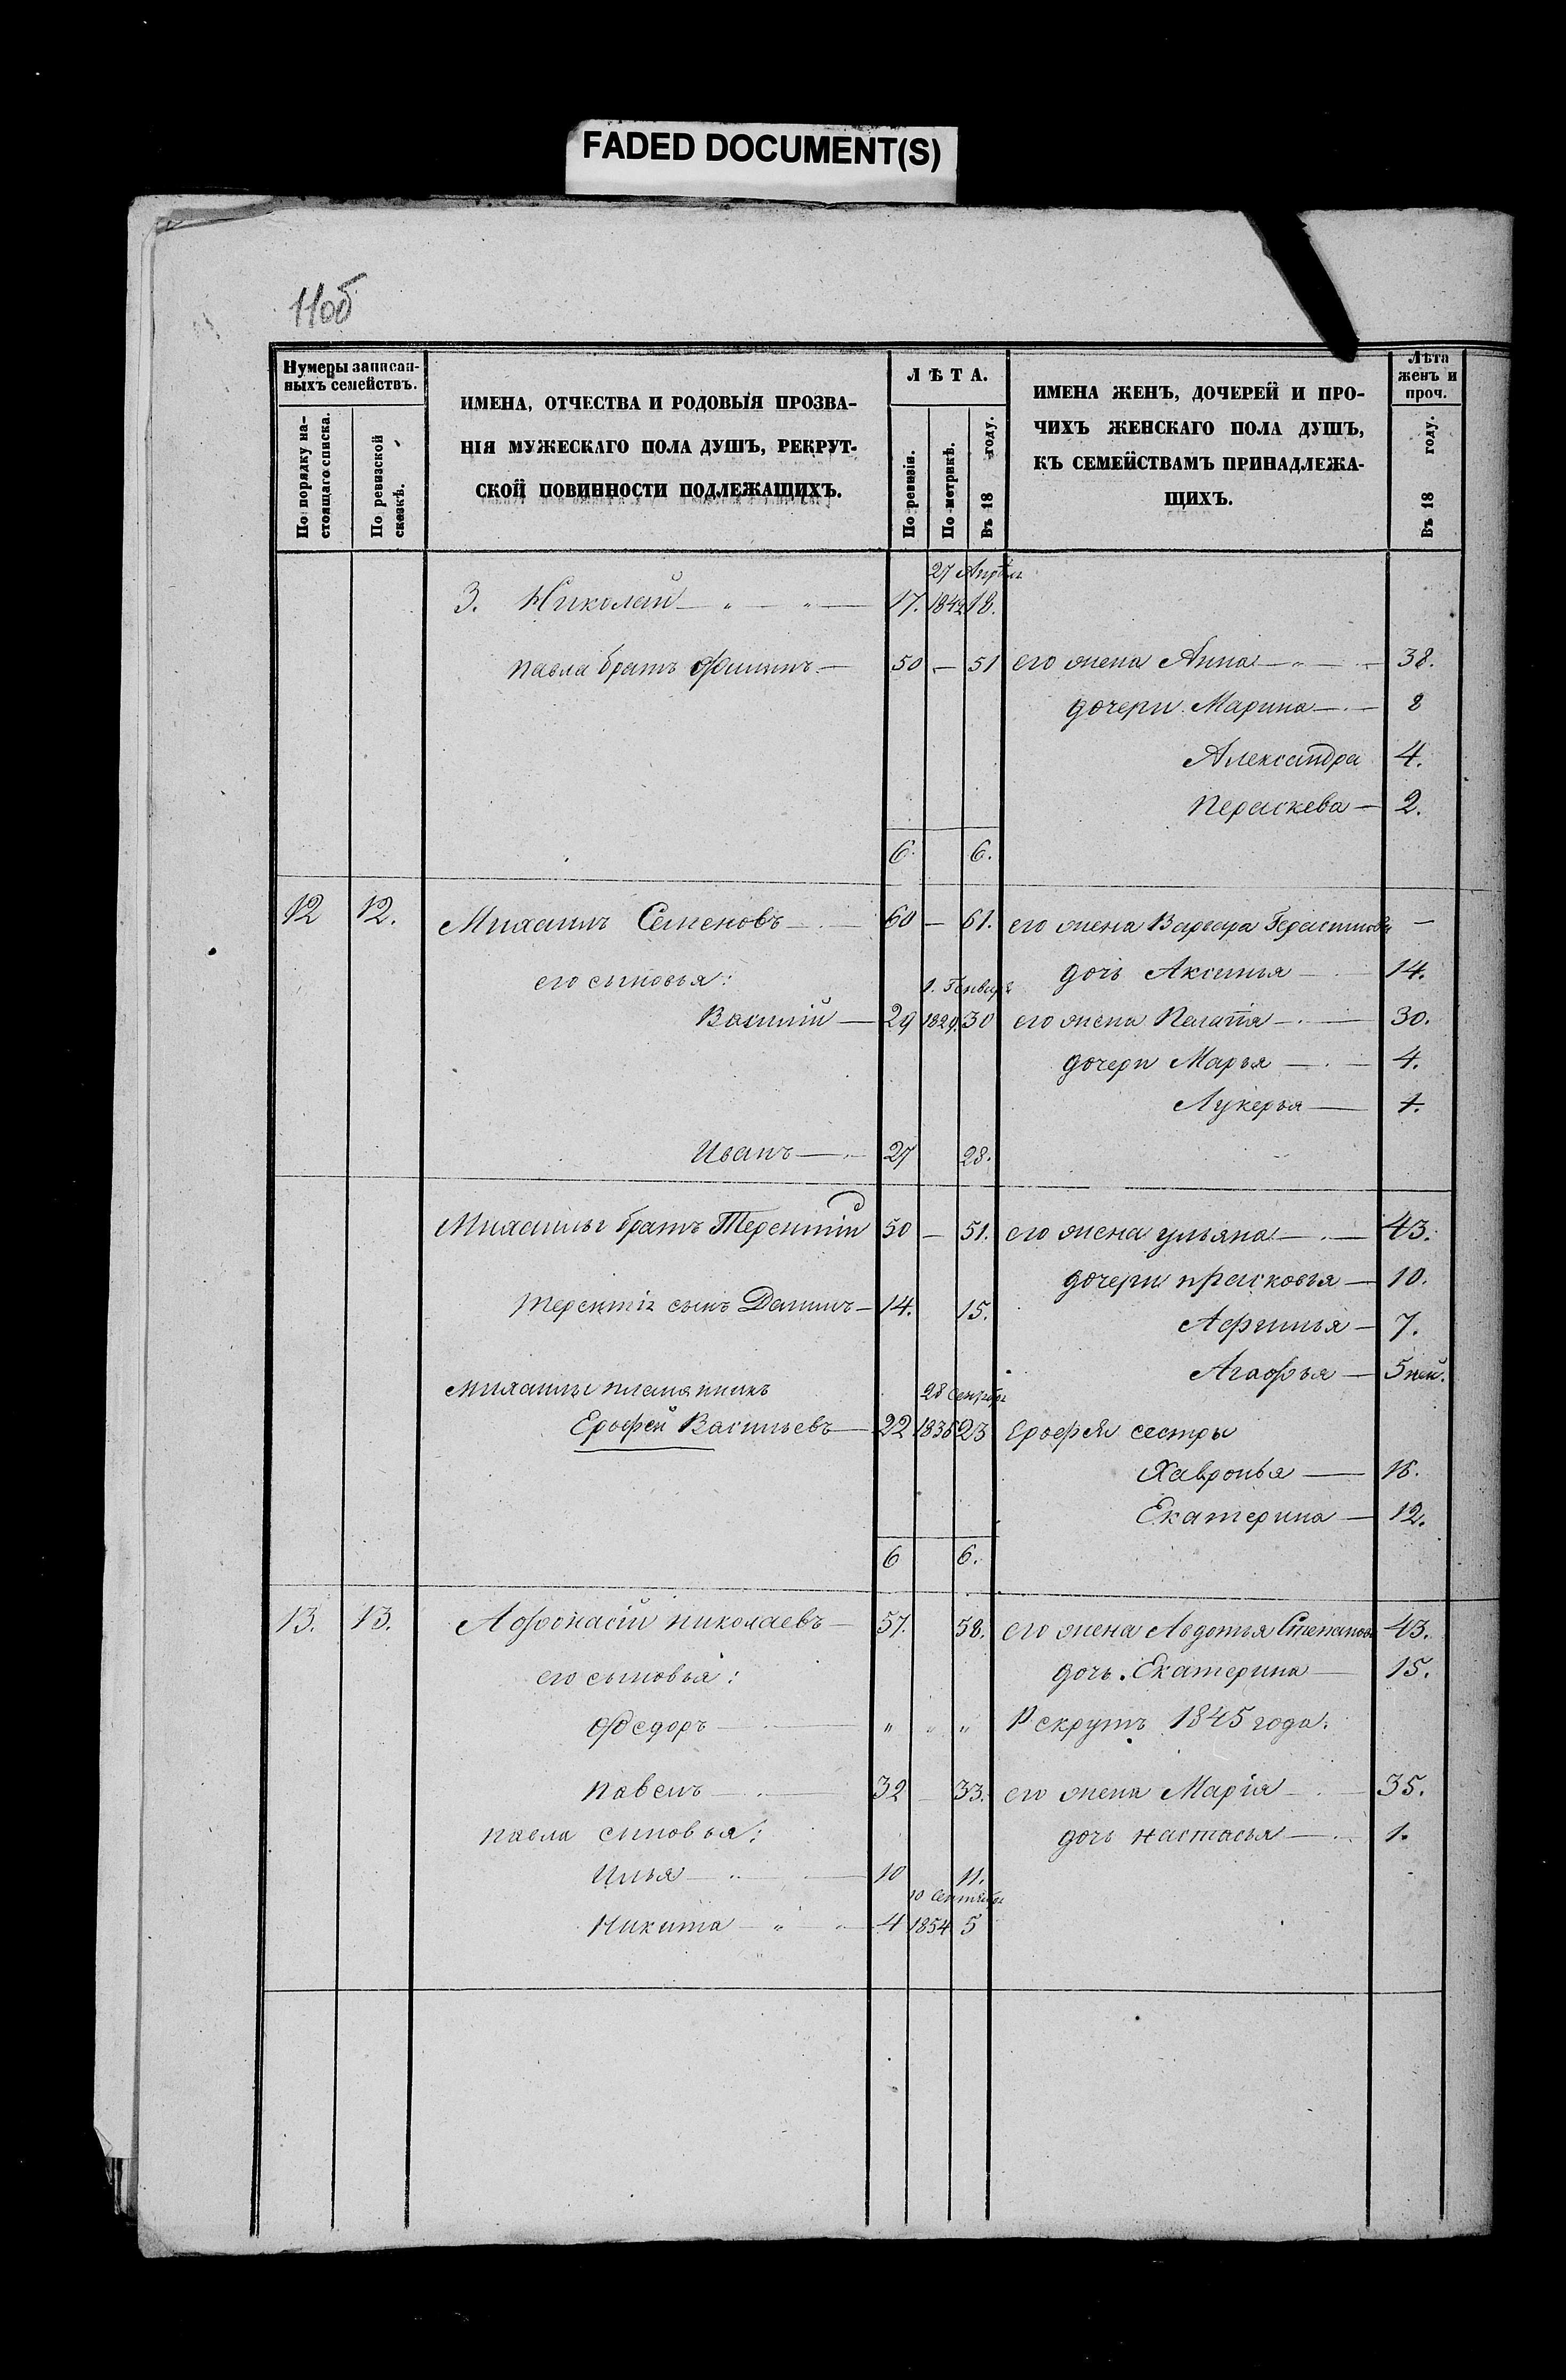 FADED DOCUMENT(S)
11об
Нумеры записан-
ныхъ семействъ.
По порядку на-
стоящаго списка.
По ревизской
сказкѣ.
ИМЕНА, ОТЧЕСТВА И РОДОВЫЯ ПРОЗВА-
НІЯ МУЖЕСКАГО ПОЛА ДУШЪ, РЕКРУТ-
СКОЙ ПОВИННОСТИ ПОДЛЕЖАЩИХЪ.
ЛѢТА.
По ревизіи.
По метрикѣ.
Въ 18 году.
ИМЕНА ЖЕНЪ, ДОЧЕРЕЙ И ПРО-
ЧИХЪ ЖЕНСКАГО ПОЛА ДУШЪ,
КЪ СЕМЕЙСТВАМЪ ПРИНАДЛЕЖА-
ЩИХЪ.
Лѣта
женъ и
проч.
Въ 18 году.
27 Апрѣля
3. Николай — „ — „ — 17. 1842 18.
Павла братъ Филипъ — 50 — 51 его жена Анна — „ — 38.
дочери Марина — 8
Александра 4.
Пераскева — 2.
6. 6.
12 12. Михаилъ Семеновъ — 60 — 61. его жена Варвара Герасимова —
его сыновья: дочь Аксинья — 14.
1. Генваря
Василій — 29 1829. 30 его жена Пелагія — 30.
дочери Марья — 4.
Лукерья — 1.
Иванъ — 27 28.
Михаилы братъ Терентій 50 — 51. его жена Ульяна — 43.
дочери Прасковья — 10.
Терентія сынъ Данилъ — 14. 15.
Афимья — 7.
Агафья — 5 нед.
Михаилы племянникъ 28 Сентября
Ерофей Васильевъ — 22 1836 23 Ерофея сестры
Хавронья — 16.
Екатерина — 12.
6 6.
13. 13. Афонасій Николаевъ — 57. 58. его жена Авдотья Степанова 43.
его сыновья: дочь. Екатерина — 15.
Федоръ — „ „ „ Рекрутъ 1845 года.
Павелъ — 32 — 33. его жена Марія — 35.
Павла сыновья: дочь Настасья — 1.
Илья — 10 11.
10 Сентября
Никита — „ — 4 1854 5